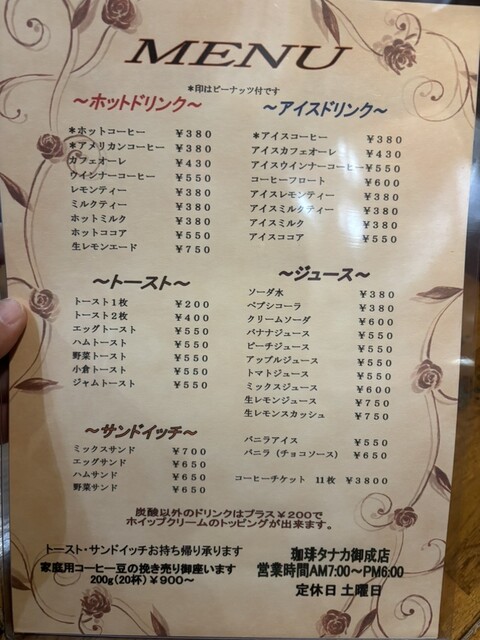 MENU
*印はピーナッツ付です
～ホットドリンク～
*ホットコーヒー ￥380
*アメリカンコーヒー ￥380
カフェオーレ ￥430
ウインナーコーヒー ￥550
レモンティー ￥380
ミルクティー ￥380
ホットミルク ￥380
ホットココア ￥550
生レモンエード ￥750
～アイスドリンク～
*アイスコーヒー ￥380
アイスカフェオーレ ￥430
アイスウインナーコーヒー ￥550
コーヒーフロート ￥600
アイスレモンティー ￥380
アイスミルクティー ￥380
アイスミルク ￥380
アイスココア ￥550
～トースト～
トースト1枚 ￥200
トースト2枚 ￥400
エッグトースト ￥550
ハムトースト ￥550
野菜トースト ￥550
小倉トースト ￥550
ジャムトースト ￥550
～ジュース～
ソーダ水 ￥380
ペプシコーラ ￥380
クリームソーダ ￥600
バナナジュース ￥550
ピーチジュース ￥550
アップルジュース ￥550
トマトジュース ￥550
ミックスジュース ￥600
生レモンジュース ￥750
生レモンスカッシュ ￥750
～サンドイッチ～
ミックスサンド ￥700
エッグサンド ￥650
ハムサンド ￥650
野菜サンド ￥650
バニラアイス ￥550
バニラ（チョコソース） ￥650
コーヒーチケット 11枚 ￥3800
炭酸以外のドリンクはプラス￥200で
ホイップクリームのトッピングが出来ます。
トースト・サンドイッチお持ち帰り承ります
家庭用コーヒー豆の挽き売り御座います
200g(20杯)￥900～
珈琲タナカ御成店
営業時間AM7:00～PM6:00
定休日 土曜日